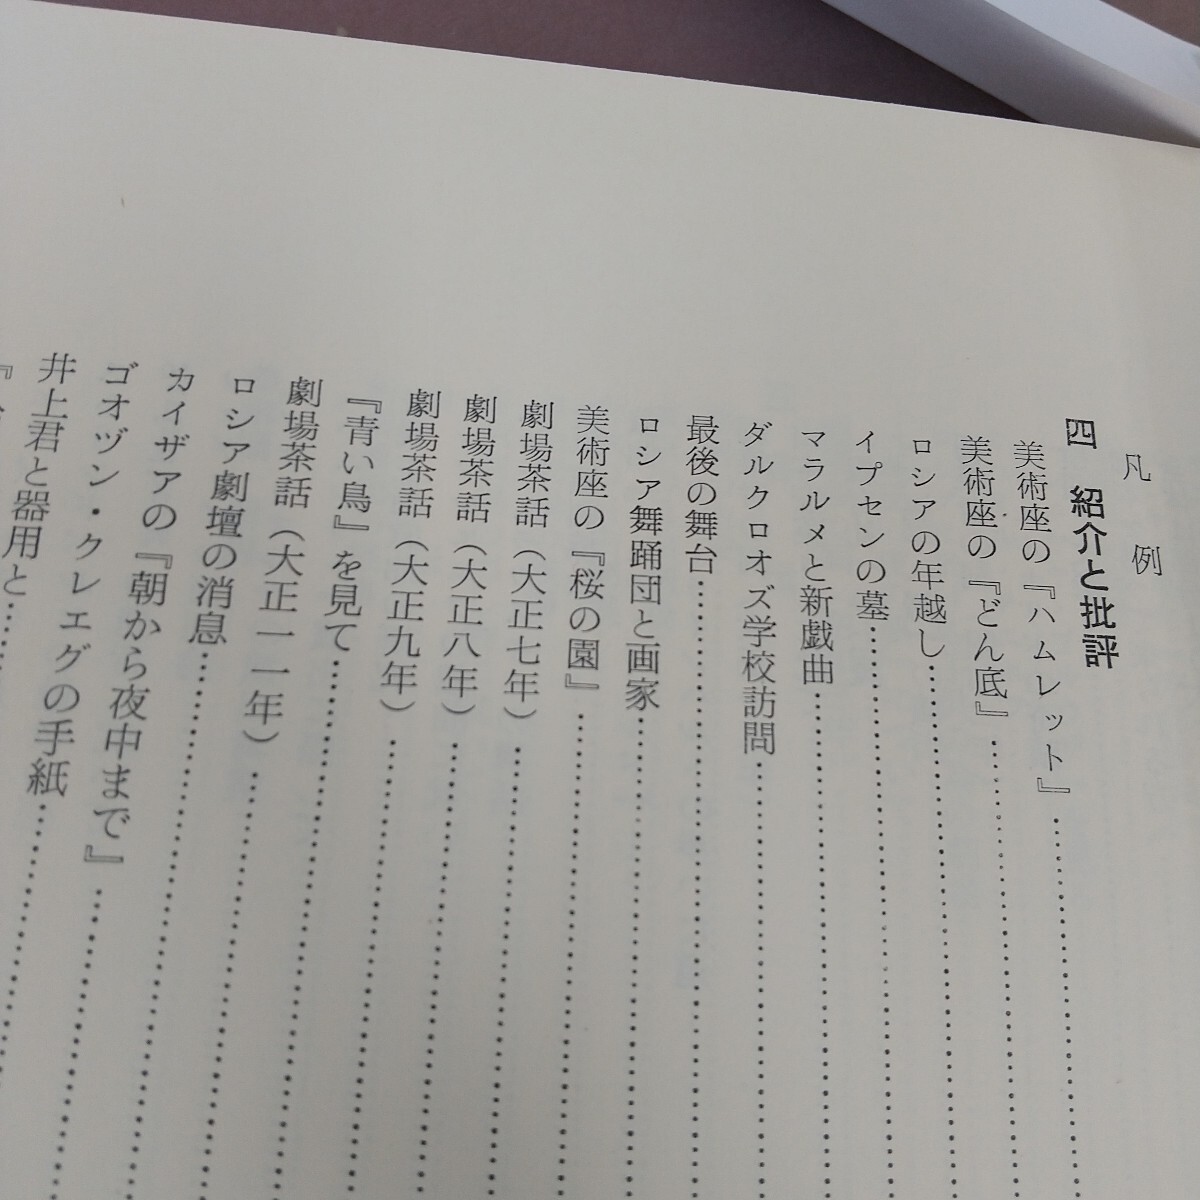 凡例
四　紹介と批評
美術座の『ハムレット』
美術座の『どん底』
ロシアの年越し
イプセンの墓
マラルメと新戯曲
ダルクロオズ学校訪問
最後の舞台
ロシア舞踊団と画家
美術座の『桜の園』
劇場茶話（大正七年）
劇場茶話（大正八年）
劇場茶話（大正九年）
『青い鳥』を見て
劇場茶話（大正一一年）
ロシア劇壇の消息
カイザアの『朝から夜中まで』
ゴオヅン・クレエグの手紙
井上君と器用と